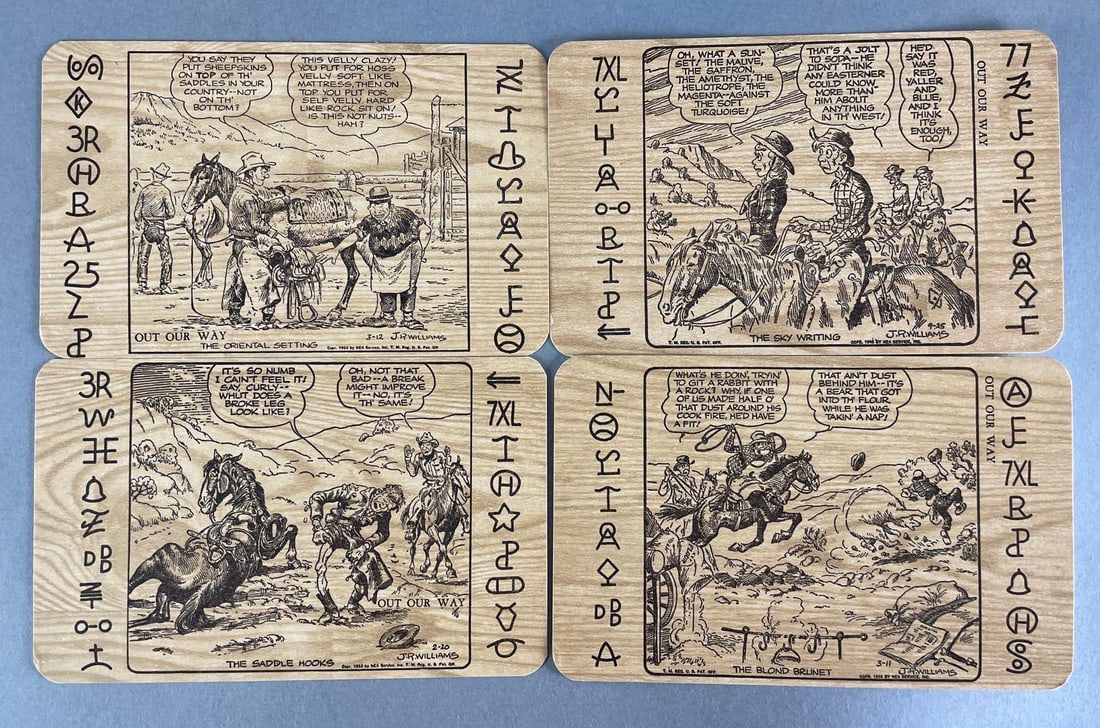 YOU SAY THEY
PUT SHEEPSKINS
ON TOP OF TH'
SADDLES IN YOUR
COUNTRY--NOT
ON TH'
BOTTOM?
THIS VELLY CLAZY!
YOU PUT FOR HOSS
VELLY SOFT LIKE
MATTRESS, THEN ON
TOP YOU PUT FOR
SELF VELLY HARD
LIKE ROCK SIT ON!
IS THIS NOT NUTS--
HAH?
OUT OUR WAY
3-12 J.R.WILLIAMS
THE ORIENTAL SETTING
Copr. 1953 by NEA Service, Inc. T. M. Reg. U. S. Pat. Off.
3R
25
7XL
OH, WHAT A SUN-
SET! THE MAUVE,
THE SAFFRON,
THE AMETHYST, THE
HELIOTROPE, THE
MAGENTA--AGAINST
THE SOFT
TURQUOISE!
THAT'S A JOLT
TO SODA--HE
DIDN'T THINK
ANY EASTERNER
COULD KNOW
MORE THAN
HIM ABOUT
ANYTHING
IN TH' WEST!
HE'D
SAY IT
WAS
RED,
YALLER
AND
BLUE,
AND I
THINK
IT'S
ENOUGH,
TOO!
OUT OUR WAY
9-25
J.R.WILLIAMS
THE SKY WRITING
T. M. REG. U. S. PAT. OFF.
7XL
77
IT'S SO NUMB
I CAIN'T FEEL IT!
SAY, CURLY--
WHUT DOES A
BROKE LEG
LOOK LIKE?
OH, NOT THAT
BAD--A BREAK
MIGHT IMPROVE
IT--NO, IT'S
TH' SAME!
OUT OUR WAY
2-20
J.R.WILLIAMS
THE SADDLE HOOKS
Copr. 1953 by NEA Service, Inc. T. M. Reg. U. S. Pat. Off.
3R
DB
7XL
WHAT'S HE DOIN', TRYIN'
TO GIT A RABBIT WITH
A ROCK? WHY IF ONE
OF US MADE HALF O'
THAT DUST AROUND HIS
COOK FIRE, HE'D HAVE
A FIT!
THAT AIN'T DUST
BEHIND HIM--IT'S
A BEAR THAT GOT
INTO TH' FLOUR,
WHILE HE WAS
TAKIN' A NAP!
OUT OUR WAY
3-11
J.R.WILLIAMS
THE BLOND BRUNET
T. M. REG. U. S. PAT. OFF.
DB
7XL